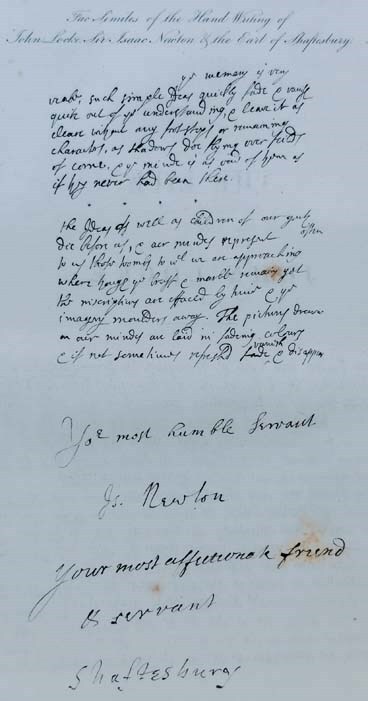 Fac Similes of the Hand Writing of
John Locke Sir Isaac Newton & the Earl of Shaftesbury.
ye memory is very
weake, such simple Ideas quickly fade & vanish
quite out of ye understanding, & leave it as
cleare without any footsteps or remaining
characters, as shadows doe flying over fields
of corne. & ye minde is as void of them as
if they never had been there.
the Ideas as well as children of our youth
die before us, & our mindes represent often
to us those tombs to wch we are approaching
where though ye brasse & marble remain yet
the inscriptions are effaced by time & ye
imagery moulders away. The pictures drawn
in our mindes are laid in fading colours
& if not sometimes refreshd vanish & disappear
Yor most humble Servant
Is. Newton
Your most affectionate friend
& servant
Shaftesbury